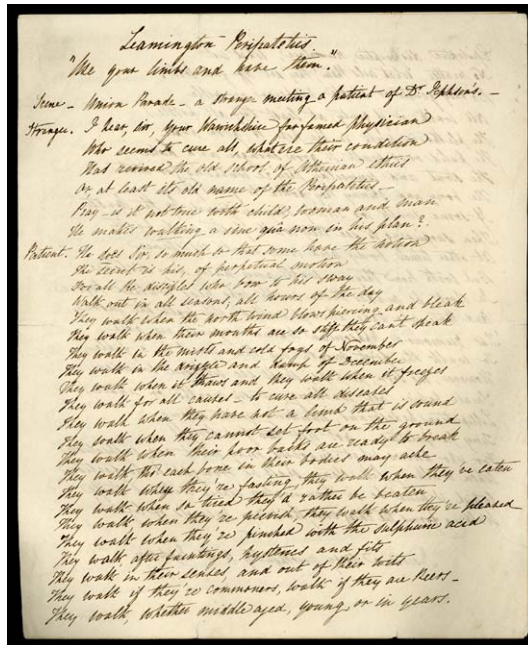 Leamington Peripatetics.
"Use your limbs and have them."
Scene - Union Parade - a stranger meeting a patient of Dr Jephson's. -
Stranger. I hear, Sir, your Warwickshire far famed Physician
Who seems to cure all, whate'er their condition
Has revived the old school of Athenian ethics
Or, at least its old name of the Peripatetics -
Pray - is it not true with child, woman and man
He makes walking a sine quâ non in his plan?
Patient. He does Sir, so much so that some have the notion
The secret is his, of perpetual motion
For all he disciples who bow to his sway
Walk out in all seasons, all hours of the day
They walk when the north wind blows piercing and bleak
They walk when their mouths are so stiff they can't speak
They walk in the mists and cold fogs of November
They walk in the drizzle and damp of December
They walk when it thaws and they walk when it freezes
They walk for all causes - to cure all diseases
They walk when they have not a limb that is sound
They walk when they cannot set foot on the ground
They walk when their poor backs are ready to break
They walk, tho' each bone in their bodies may ache
They walk when they're fasting, they walk when they've eaten
They walk when so tired they'd rather be beaten
They walk when they're peevish, they walk when they're pleased
They walk when they're pinched with the sulphuric acid
They walk after faintings, hysterics and fits
They walk in their senses, and out of their wits
They walk if they're commoners, walk if they are Peers -
They walk, whether middle aged, young, or in years.